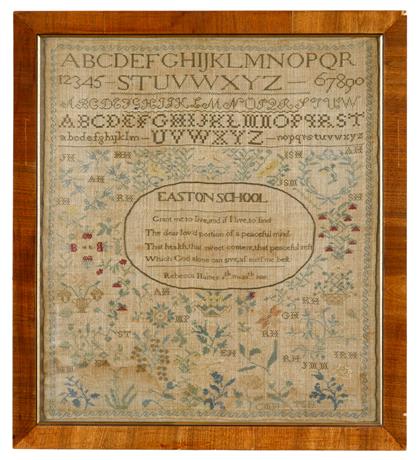 ABCDEFGHIJKLMNOPQR
12345—STUVWXYZ—67890
ABCDEFGHIJKLMNOPQRSTUVW
ABCDEFGHIJKLMNOPQRST
abcdefghijklm—UVWXYZ—nopqrstuvwxyz
JH HH ISH AH
AH JSH
RH SH
EASTON SCHOOL
Grant me to live, and if I live, to find
The dear lov'd portion of a peaceful mind
That health, that sweet content, that peaceful rest
Which God alone can give, as
Rebecca Haines
AH
MP GH
ST RH
EH RH IRH